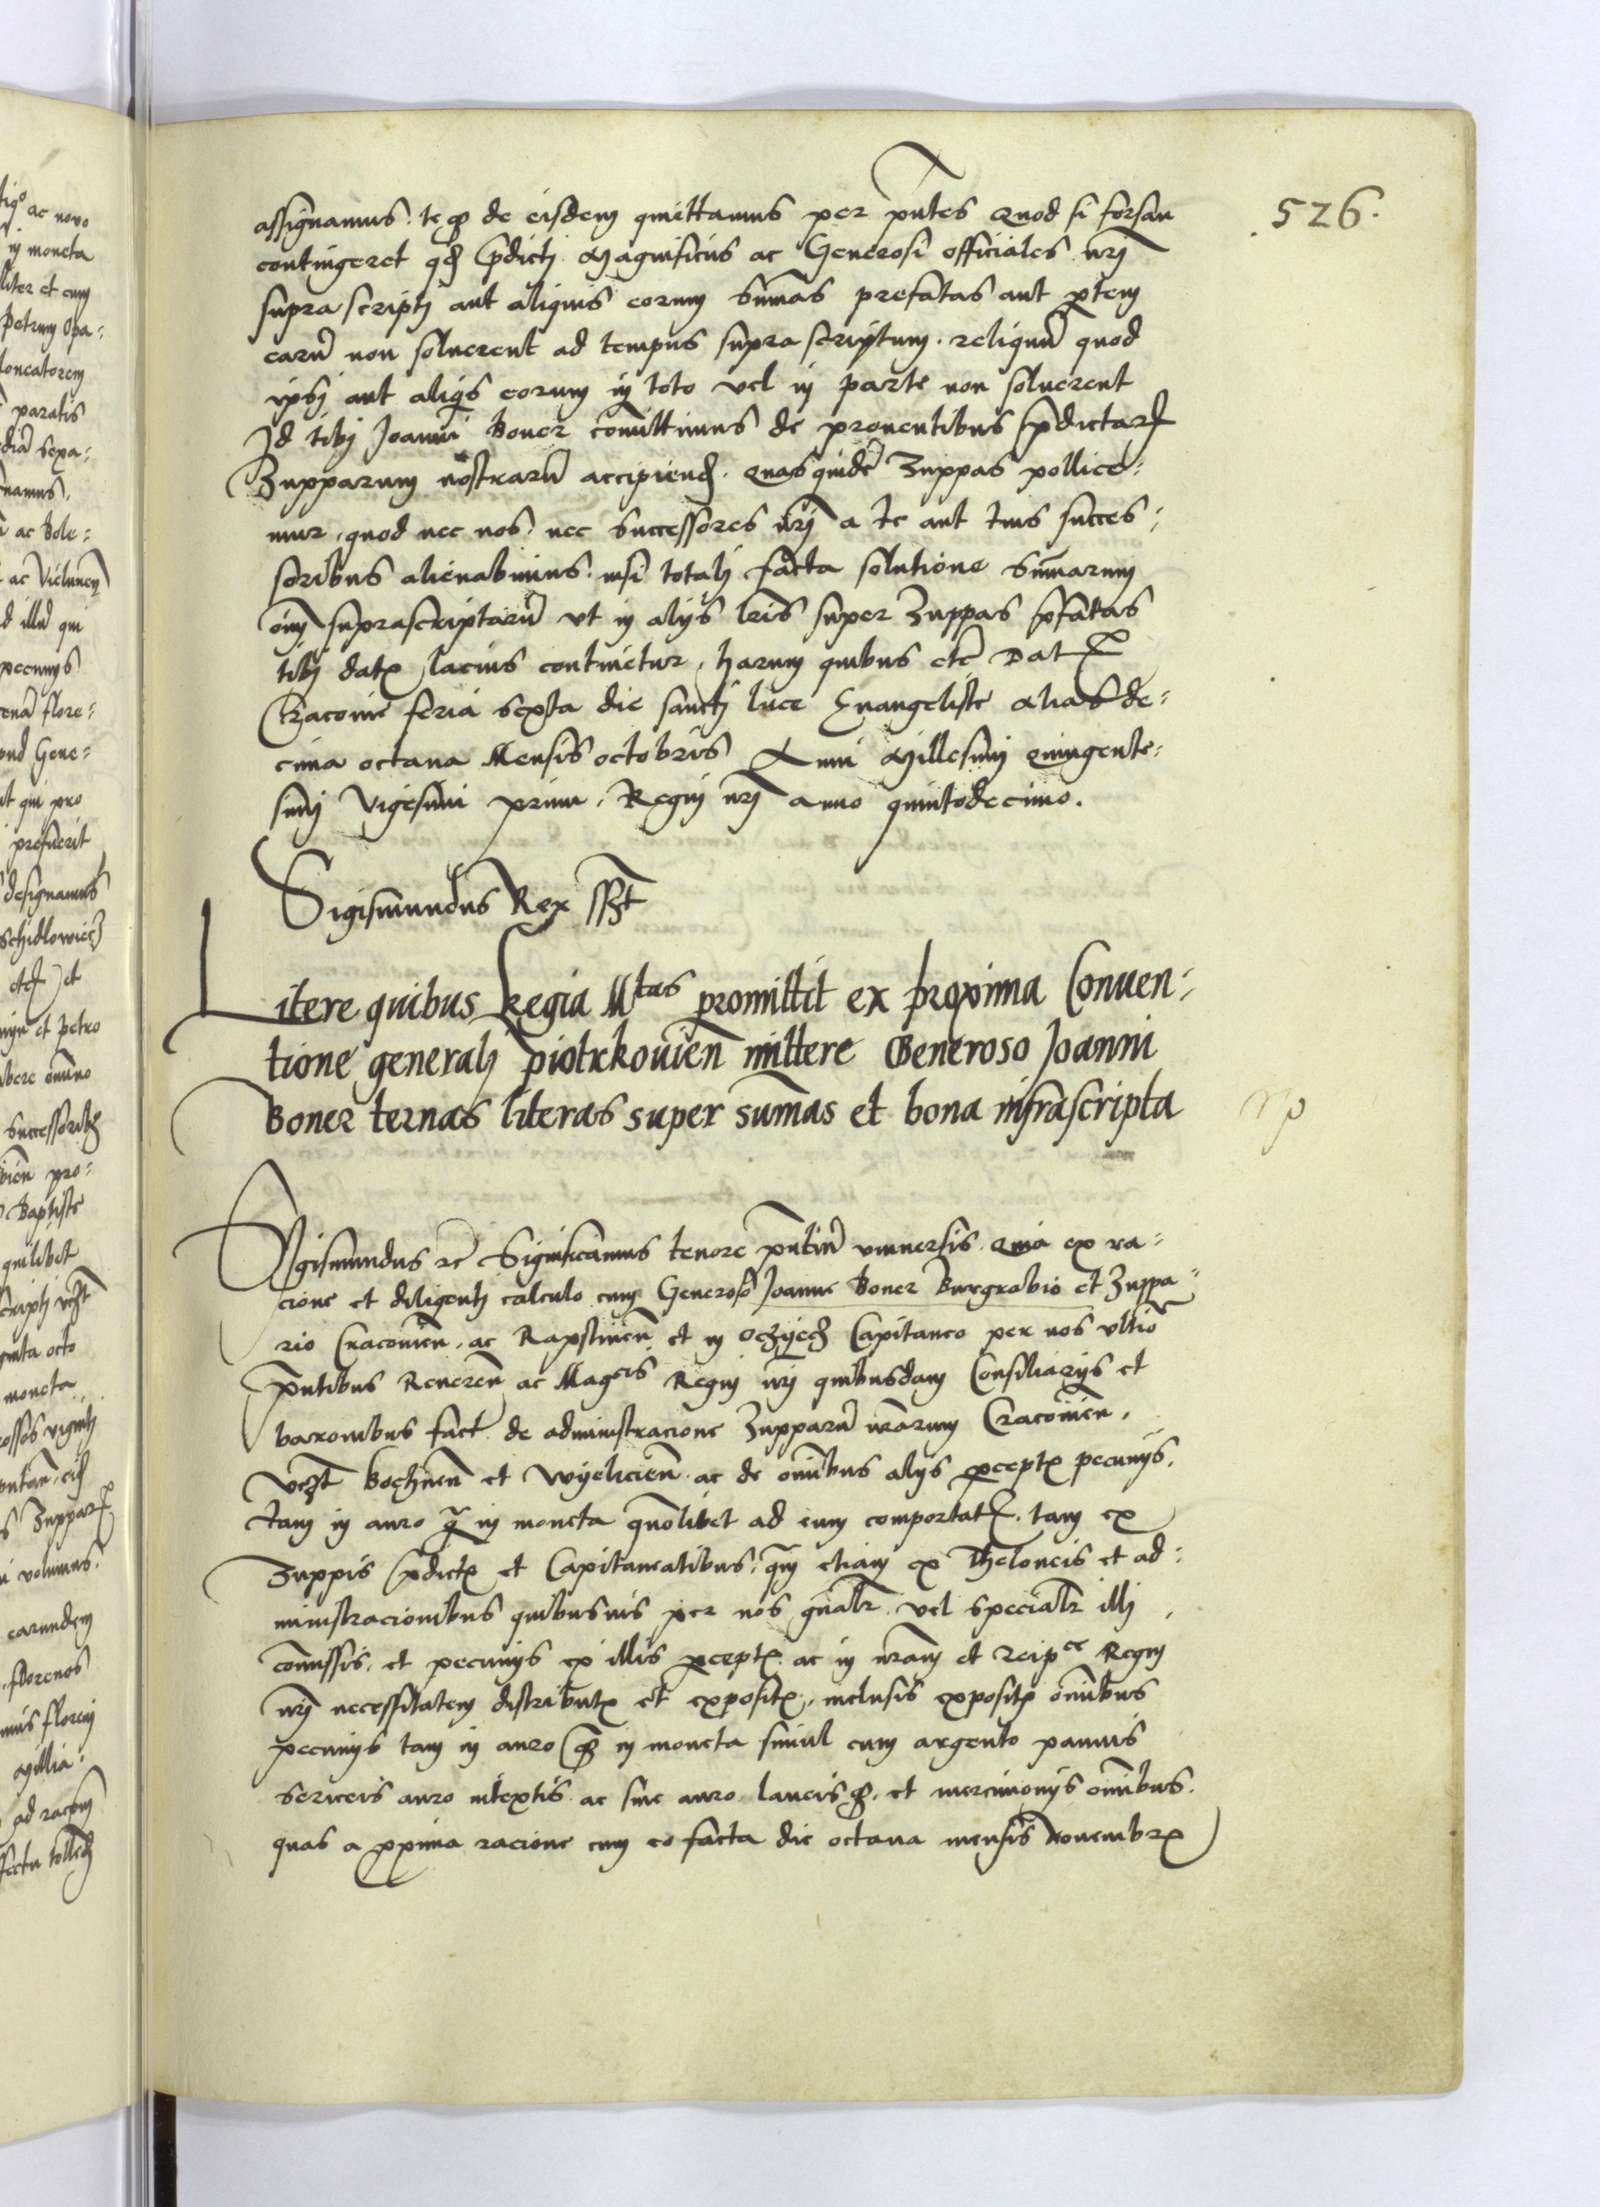 526.
assignamus. teq3 de eisdem quittamus per pñtes Quod si forsan
contingeret q̃d p̃dicti Magnificus ac Generosi officiales nr̃i
suprascripti aut aliquis eorum Sum̃as prefatas aut ꝑtem
earũ non soluerent ad tempus suprascriptum. reliquũ quod
ipsi aut aliq̃s eorum in toto vel in parte non soluerent
Id tibi Joanni Boner com̃ittimus de prouentibus p̃dictarꝝ
Zupparum nostrarũ accipiend̃. Quasquidẽ Zuppas pollice=
mur, quod nec nos. nec Successores nr̃i a te aut tuis succes=
soribus alienabimus. nisi totali facta solutione Sum̃arum
om̃i suprascriptarũ vt in alijs lr̃is super Zuppas p̃fatas
tibi dat̃ lacius continetur, harum quibus etc̃ Dat̃
Cracouie feria sexta die sancti luce Euangeliste Alias de=
cima octaua Mensis octobris Anni Millesimi Quingente=
simi Vigesimi primi, Regni nr̃i anno quintodecimo.
Sigismundus Rex sszt
Litere quibus Regia Mtas promittit ex proxima Conuen=
tione generali piotrkouien̄ mittere Generoso Joanni
Boner ternas literas super sum̄as et bona infrascripta
Sigismundus rc̃ Significamus tenore pñtiũ vniuersis. Quia ex ra=
cione et diligenti calculo cum Generoso Joanne Boner Burgrabio et Zuppa=
rio Cracouien̄. ac Rapstinen̄ et in Oczyecz Capitaneo per nos vltiõ
pñtibus Reueren̄ ac Magcis Regni nr̃i quibusdam Consiliarijs et
baronibus fact̃ de administracione Zupparũ nr̃arum Cracouien̄,
vczt Bochnen̄ et Wyelicien̄. ac de om̃ibus alijs ꝑcept̃ pecunijs,
tam in auro q̃ in moneta quõlibet ad eum comportat̃. tam ex
Zuppis p̃dict̃ et Capitaneatibus. q̃m etiam ex Theloneis et ad=
ministracionibus quibusuis per nos gñalr̃ vel specialr̃ illi,
com̃issis, et pecunijs ex illis ꝑcept̃ ac in nr̃am et reipce Regni
nr̃i necessitatem distribut̃ et exposit̃, inclusis exposit̃ om̃ibus
pecunijs tam in auro q̃ in moneta simul cum argento pannis
sericeis auro intextis ac sine auro laneisq3, et mercimonijs om̃ibus.
quas a ꝓxima racione cum eo facta die octaua mensis Nouembr̃